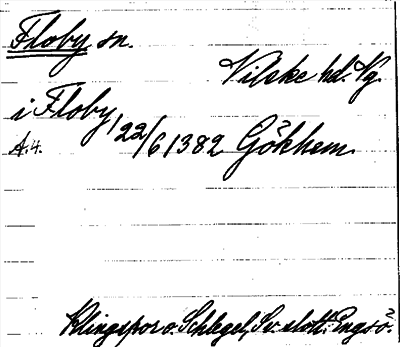 Floby sn.
Vilske hd. Vg.
i Floby, 22/6 1382 Gökhem.
A.4.
Klingspor o. Schlegel, Sv. slott: Engsö.